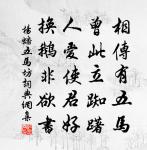 相傳有五馬
曾此立踟躇
人愛使君好
換鵝非俗書
楊蟠五馬坊詞典網集